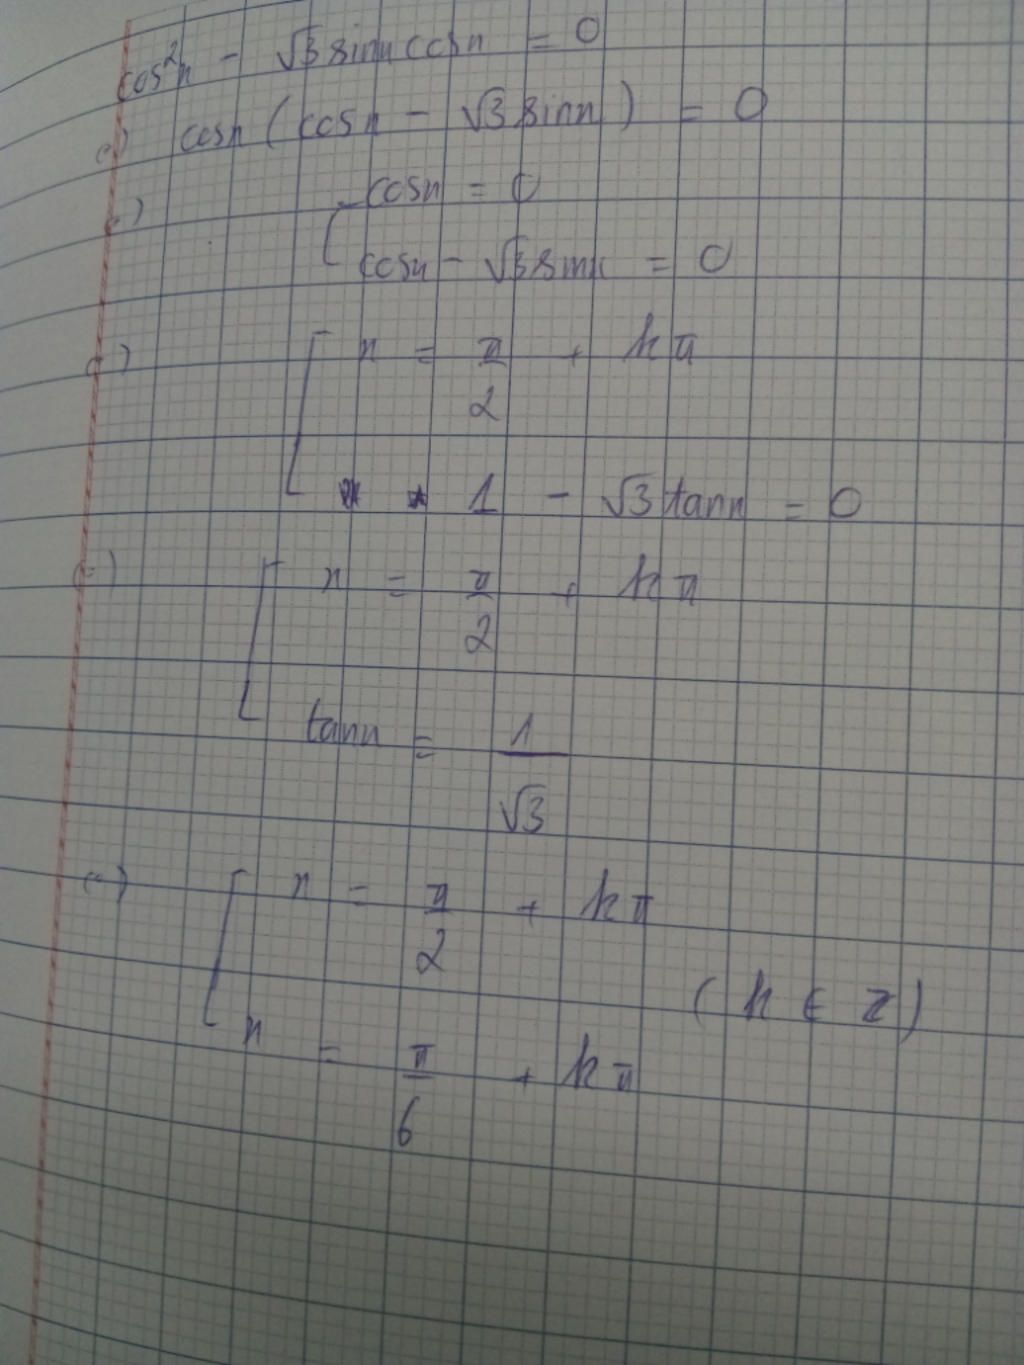 cos²x - √3 sinx cosx = 0
(=) cosx (cosx - √3 sinx) = 0
(=) [ cosx = 0
cosx - √3 sinx = 0
(=) [ x = π/2 + kπ
1 - √3 tanx = 0
(=) [ x = π/2 + kπ
tanx = 1/√3
(=) [ x = π/2 + kπ
(k ∈ Z)
x = π/6 + kπ